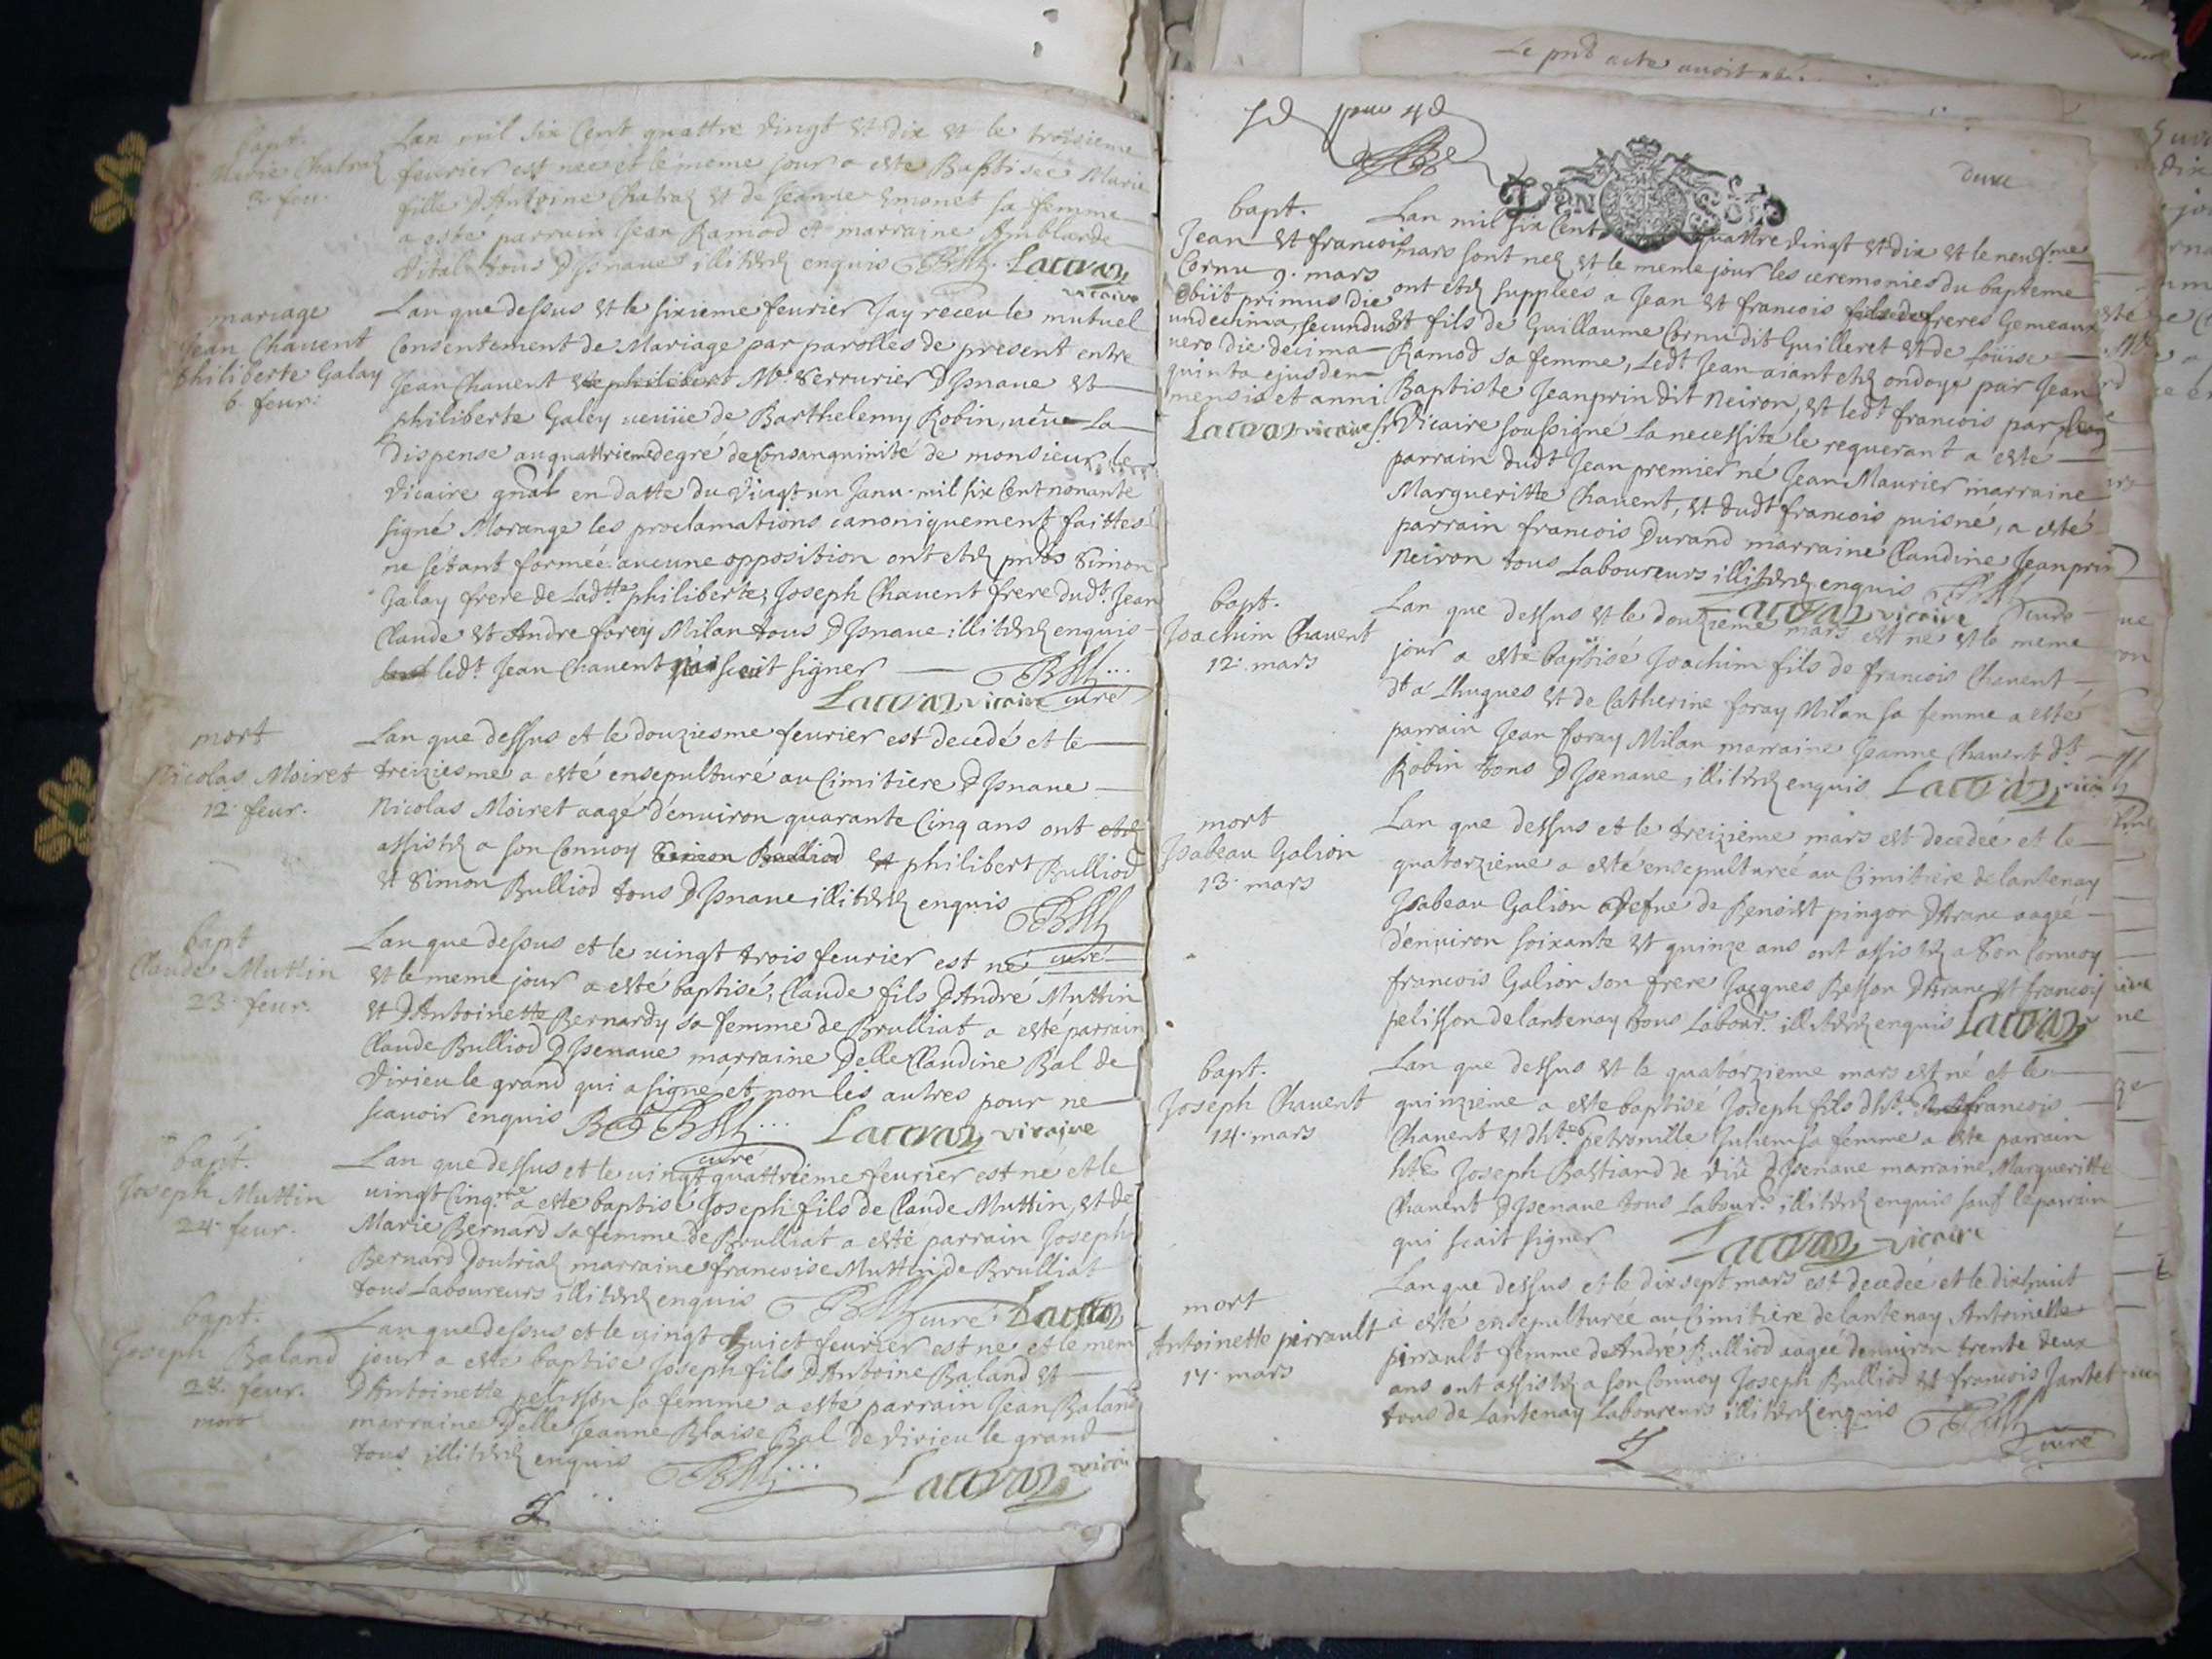 bapt.
Marie Chatraz
3. feu.
Lan mil six Cent quattre vingt et dix et le troisieme
feurier est neé et le meme jour a esté Baptisée Marie
fille D'Antoine Chatraz et de Jeanne Emonet sa femme
a este parrain Jean Ramod et marraine Amblarde
Vital tous D'Isnaue illitérés enquis Lacraz
vicaire
mariage
Jean Chauent
philiberte Galay
6. feur:
Lan que dessus et le sixieme feurier Jay receu le mutuel
Consentement de Mariage par parolles de present entre
Jean Chauent et philibert Me. Serrurier D'Isnaue et
philiberte Galey ueuüe de Barthelemy Robin, ueüe La
dispense au quattrieme degré de Consanguinité de monsieur le
Vicaire gnal en datte du Vingt un Janu. mil six Cent nonante
signé Morange les proclamations canoniquement faittes
ne s'étant formée aucune opposition ont etéz pnts Simon
Galay frere de Ladtte philiberte, Joseph Chauent frere dudt. Jean
Claude et Andre forey Milan tous D'Isnaue illitérés enquis
sauf ledt. Jean Chauent qui scait signer
Lacraz vicaire curé
mort
Nicolas Moiret
12. feur.
Lan que dessus et le douziesme feurier est decedé et le
treiziesme a esté ensepulturé au Cimitiere D'Isnaue
Nicolas Moiret aagé d'enuiron quarante Cinq ans ont etéz
assistéz a son Conuoy Simon Bulliod et philibert Bulliod
et Simon Bulliod tous D'Isnaue illitérés enquis
curé
bapt
Claude Muttin
23. feur.
Lan que dessus et le uingt trois feurier est né
et le meme jour a esté baptisé, Claude fils D'André Muttin
et D'Antoinette Bernardy sa femme de Brulliat a esté parrain
Claude Bulliod D'Isenaue marraine Delle Claudine Bal de
Virieu le grand qui a signé et non les autres pour ne
scauoir enquis Lacraz vicaire
curé
bapt.
Joseph Muttin
24. feur.
Lan que dessus et le uingt quattrieme feurier est né et le
uingt Cinqme a este baptisé Joseph fils de Claude Muttin, et de
Marie Bernard sa femme de Brulliat a esté parrain Joseph
Bernard Doutriaz marraine francoise Muttin de Brulliat
tous Laboureurs illitérés enquis curé Lacraz
bapt.
Joseph Baland
28. feur.
mort
Lan que dessus et le uingt huict feurier est ne et le mem
jour a esté baptisé Joseph fils D'Antoine Baland et
D'Antoinette pelisson sa femme a esté parrain Jean Baland
marraine Delle Jeanne Blaise Bal de Virieu le grand
tous illitérés enquis Lacraz vicai
Le pnt acte auoit
deux
bapt.
Jean et francois
Cornu 9. mars
obiit primus die
undecima, secundus
uero die decima
quinta ejusdem
mensis et anni
Lacraz vicaire
Lan mil six Cent quattre vingt et dix et le neufme
mars sont nez et le meme jour les ceremonies du bapteme
ont etéz suppleés a Jean et francois fils de freres Gemeaux
et fils de Guillaume Cornu dit Guilleret et de Loüise
Ramod sa femme, Ledt Jean aiant etéz ondoye par Jean
Baptiste Jeanprin dit Neiron, et ledt. francois par
Vicaire soussigné La necessité le requerant a este
parrain dudt Jean premier né Jean Maurier marraine
Margueritte Chauent, et dudt francois puisné, a esté
parrain francois Durand marraine Claudine Jeanprin
Neiron tous Laboureurs illitérés enquis
Lacraz vicaire curé
bapt.
Joachim Chauent
12. mars
Lan que dessus et le douzieme mars est né et le meme
jour a esté baptisé Joachim fils de francois Chauent
dt a Lhugues et de Catherine foray Milan sa femme a esté
parrain Jean foray Milan marraine Jeanne Chauent dt
Robin tous D'Isenaue illitérés enquis Lacraz
mort
Isabeau Galion
13. mars
Lan que dessus et le treizieme mars est decedeé et le
quatorzieme a esté ensepultureé au Cimitiere de lantenay
Isabeau Galion de Benoist pingon D'Aranc aageé
d'enuiron soixante et quinze ans ont assistéz a son Conuoy
francois Galion son frere Jacques Besson D'Aranc et francois
pelisson de lantenay tous Labourrs. illitérés enquis Lacraz
bapt.
Joseph Chauent
14. mars
Lan que dessus et le quatorzieme mars est né et le
quinzieme a este baptisé Joseph fils dht. francois
Chauent et dhte petronille Guhem sa femme a este parrain
hte Joseph Bastiand de D'Isenaue marraine Margueritte
Chauent D'Isenaue tous Labourrs. illitérés enquis sauf le parrain
qui scait signer Lacraz vicaire
mort
Antoinette pirrault
17. mars
Lan que dessus et le dix sept mars est decedeé et le dixhuit
a esté ensepulturée au Cimitiere de lantenay Antoinette
pirrault femme de André Bulliod aageé d'enuiron trente deux
ans ont assistéz a son Conuoy Joseph Bulliod et francois Jantet
tous de Lantenay Laboureurs illitérés enquis
curé